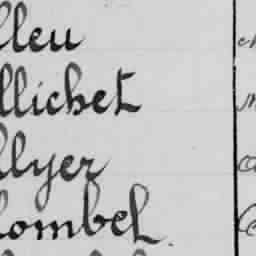 lleu
llichet
llyer
lombel.